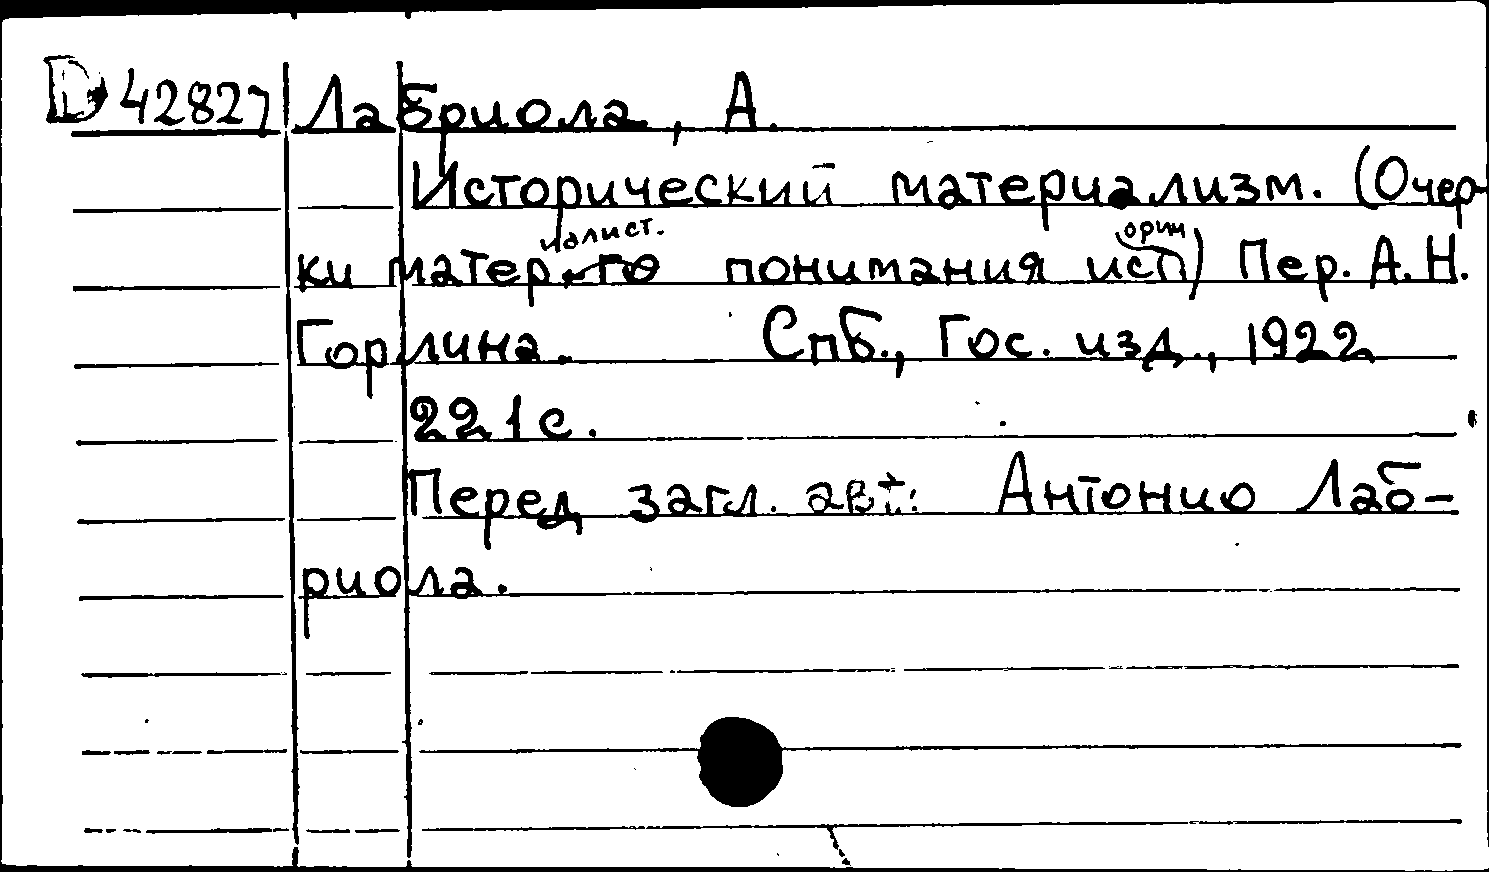 D 42827 Лабриола, А.
Исторический материализм. (Очер-
ки материалист. понимания истории) Пер. А. Н.
Горлина. Спб., Гос. изд., 1922
221 с.
Перед загл. авт.: Антонио Лаб-
риола.